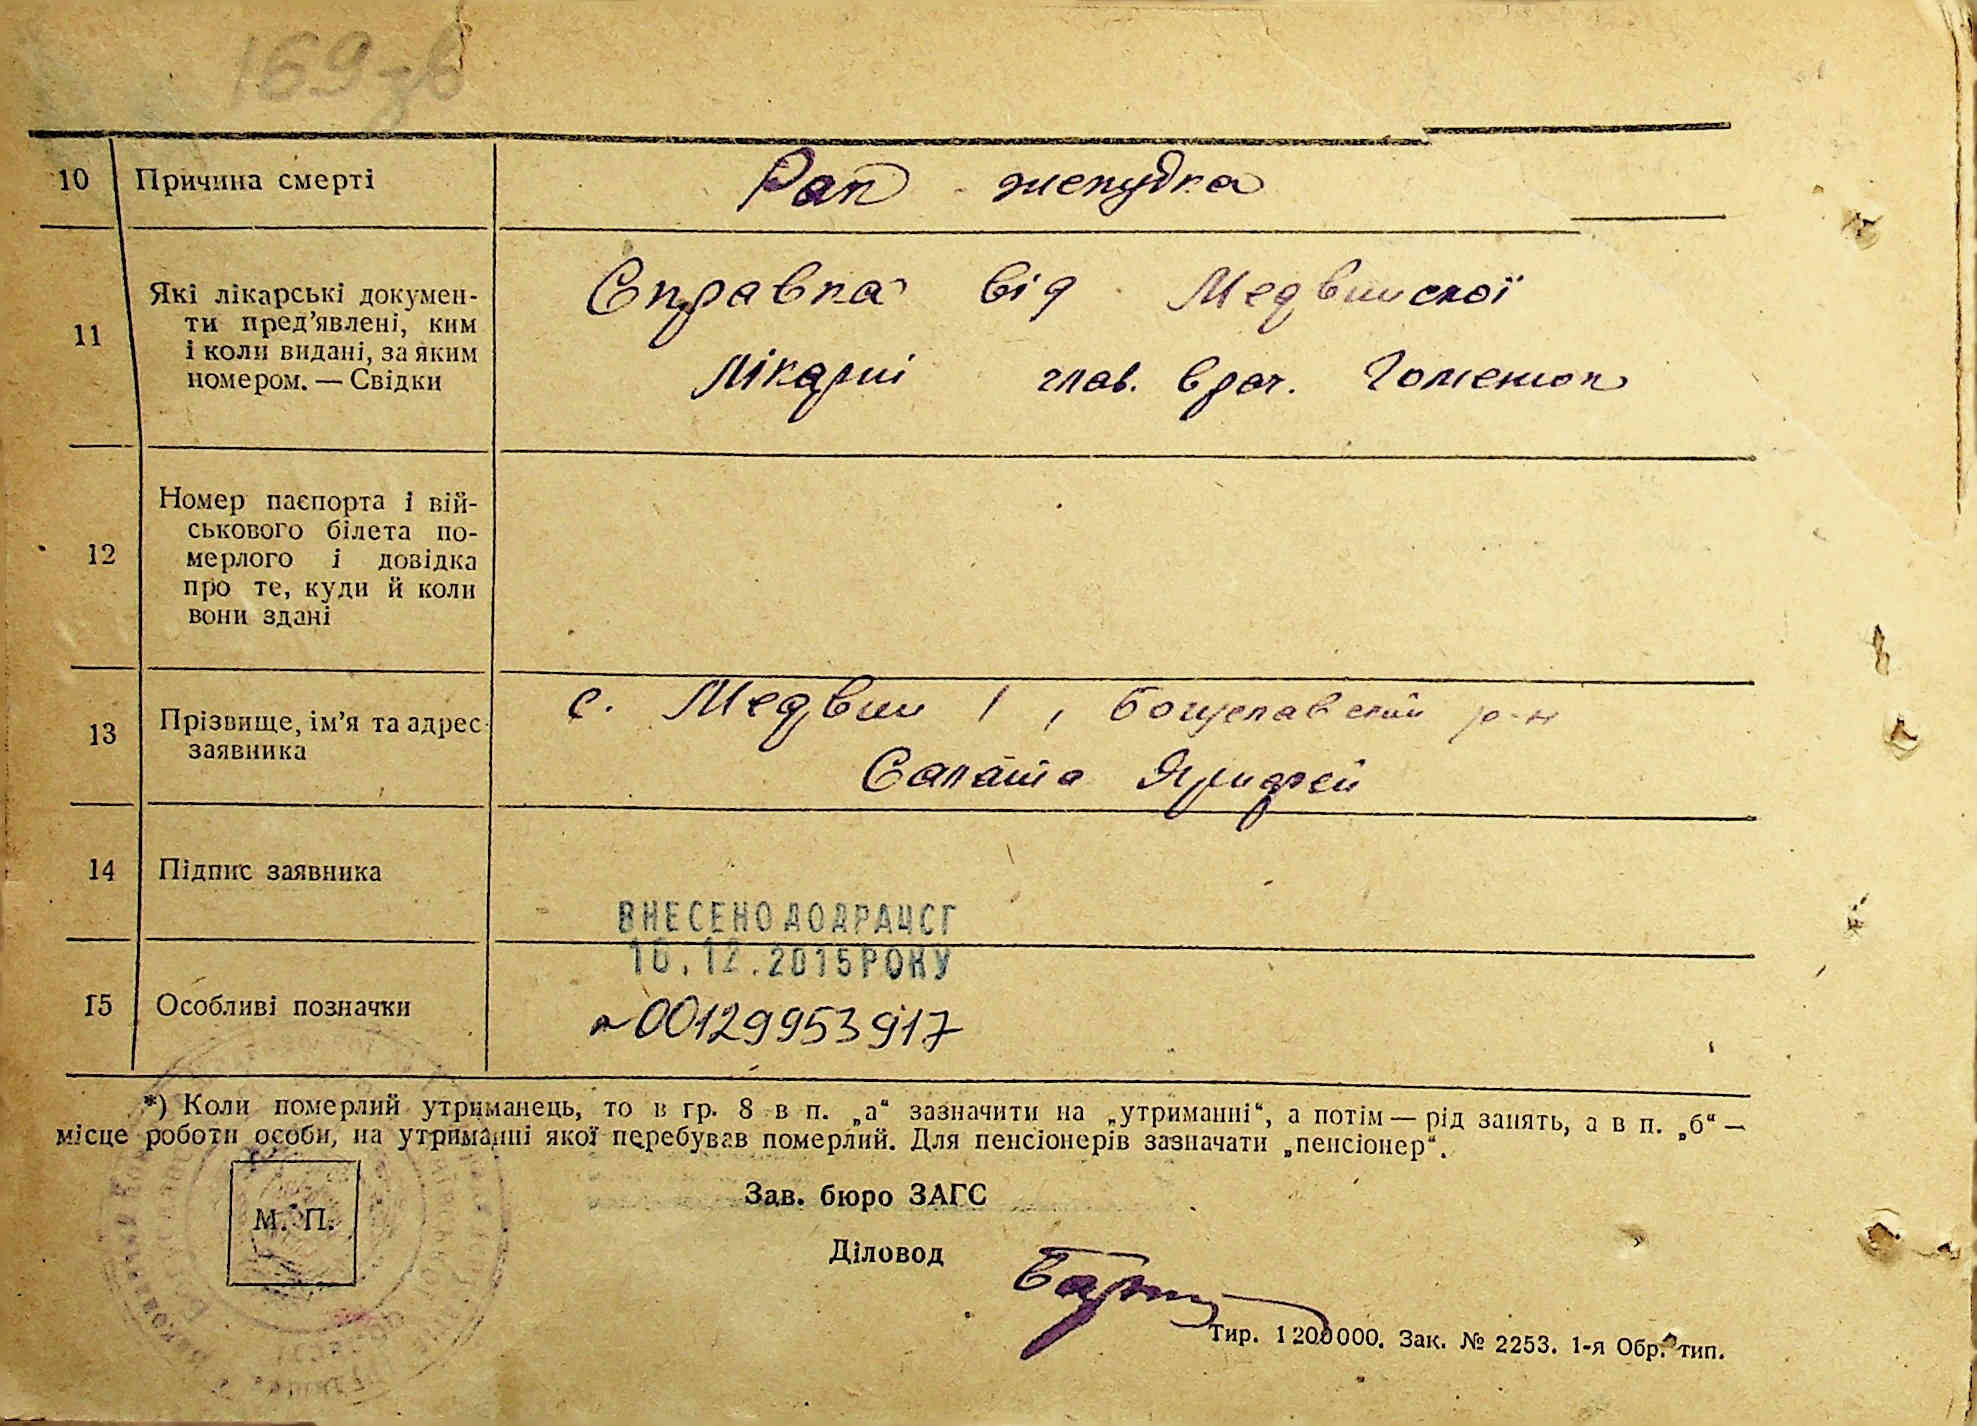 169 зв
10 Причина смерті Рак желудка
11 Які лікарські докумен-
ти пред’явлені, ким
і коли видані, за яким
номером. — Свідки
Справка від Медвинскої
Лікарні глав. врач. Гоменюк
12 Номер паспорта і вій-
ськового білета по-
мерлого і довідка
про те, куди й коли
вони здані
13 Прізвище, ім’я та адрес
заявника
с. Медвин 1, Богуславский р-н
Салата
14 Підпис заявника
15 Особливі позначки
ВНЕСЕНО ДО ДРАЦСГ
16.12.2015 РОКУ
00129953917
*) Коли померлий утриманець, то в гр. 8 в п. „а“ зазначити на „утриманні“, а потім — рід занять, а в п. „б“ —
місце роботи особи, на утриманні якої перебував померлий. Для пенсіонерів зазначати „пенсіонер“.
М. П.
Зав. бюро ЗАГС
Діловод
Тир. 1200000. Зак. № 2253. 1-я Обр. тип.